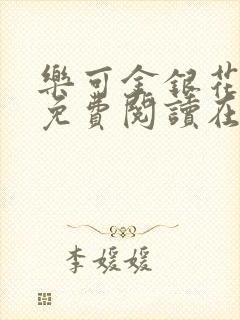 樂可金銀花
免費閱讀在
李媛媛